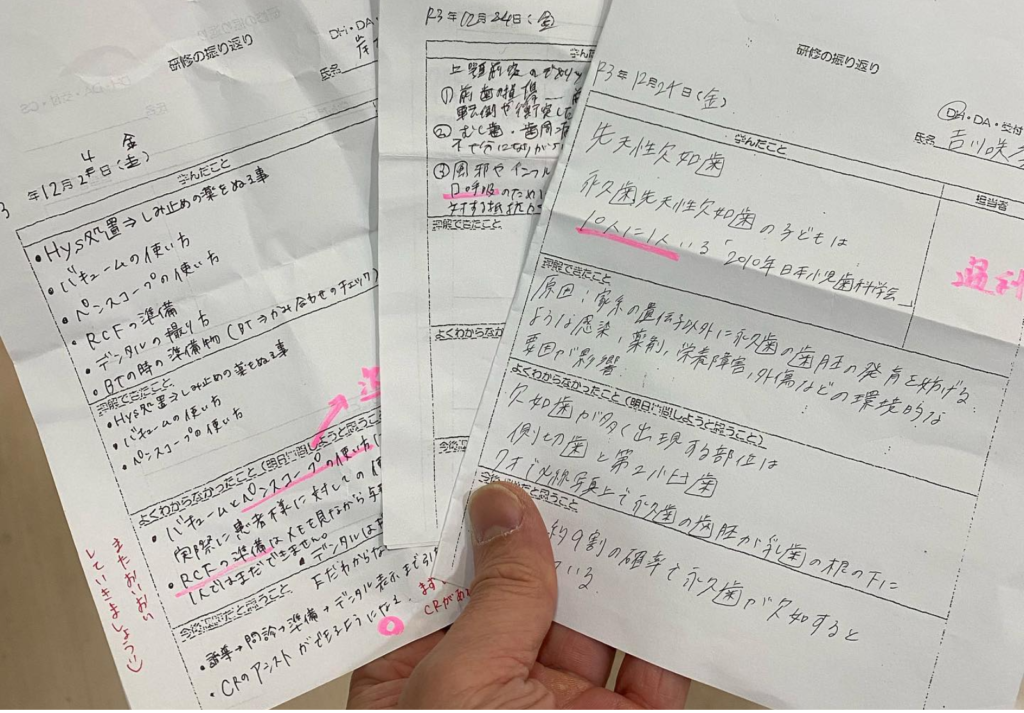 研修の振り返り
DH・DA・
氏名
年12月24日(金)
学んだこと
・Hys処置⇒しみ止めの薬をぬる事
・バキュームの使い方
・ペンスコープの使い方
・RCFの準備
・デンタルの撮り方
・BTの時の準備物(BT⇒かみ合わせのチェック)
理解できたこと
・Hys処置⇒しみ止めの薬をぬる事
・バキュームの使い方
・ペンスコープの使い方
よくわからなかったこと(明日
・バキュームとペンスコープの使い方
実際に患者様に対しての使
・RCFの準備はメモを見ながら
1人ではまだできません。
・デンタルは
まだわからな
今後
・問診→準備→デンタル表示まで
・CRのアシストができるようになる
まず
CRがある
またおいおい
していきましょう
R3年12月24日(金)
学んだこと
上顎前突の
①前歯の損傷
転倒や衝突した
②むし歯・歯周病
③風邪やインフル
口呼吸のため
対する抵抗
理解できたこと
よくわからなか
今後
研修の振り返り
R3年12月24日(金)
DH・DA・受付
氏名
学んだこと
担当者
先天性欠如歯
永久歯先天性欠如歯の子どもは
10人に1人いる「2010年日本小児歯科学会」
理解できたこと
原因:家系の遺伝子以外に永久歯の歯胚の発育を妨げる
ような感染,薬剤,栄養障害,外傷などの環境的な
要因が影響
よくわからなかったこと(明日
欠如歯が多く出現する部位は
側切歯と第2小臼歯
7才でX線写真上で永久歯の歯胚が乳歯の根の下に
約9割の確率で永久歯が欠如すると
いる.